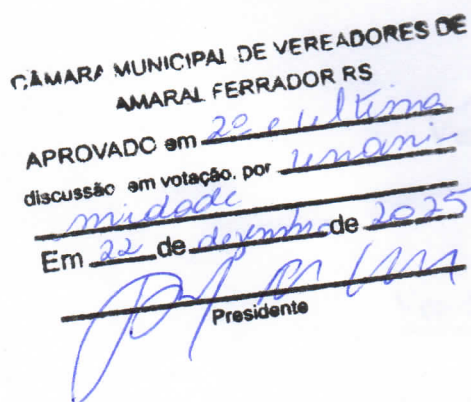 CÂMARA MUNICIPAL DE VEREADORES DE
AMARAL FERRADOR RS
APROVADO em 2º e última
discussão em votação, por unani-
midade
Em 22 de dezembro de 2025
Presidente